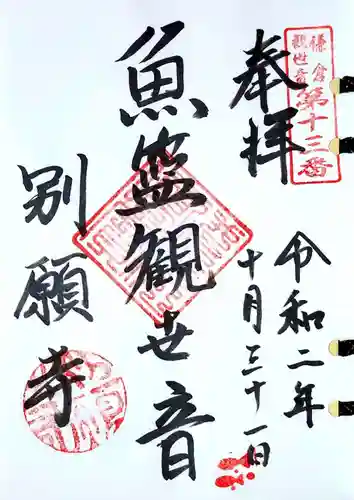 鎌倉
観世音
第十三番
奉拝
令和二年
十月三十一日
魚籃観世音
別願寺